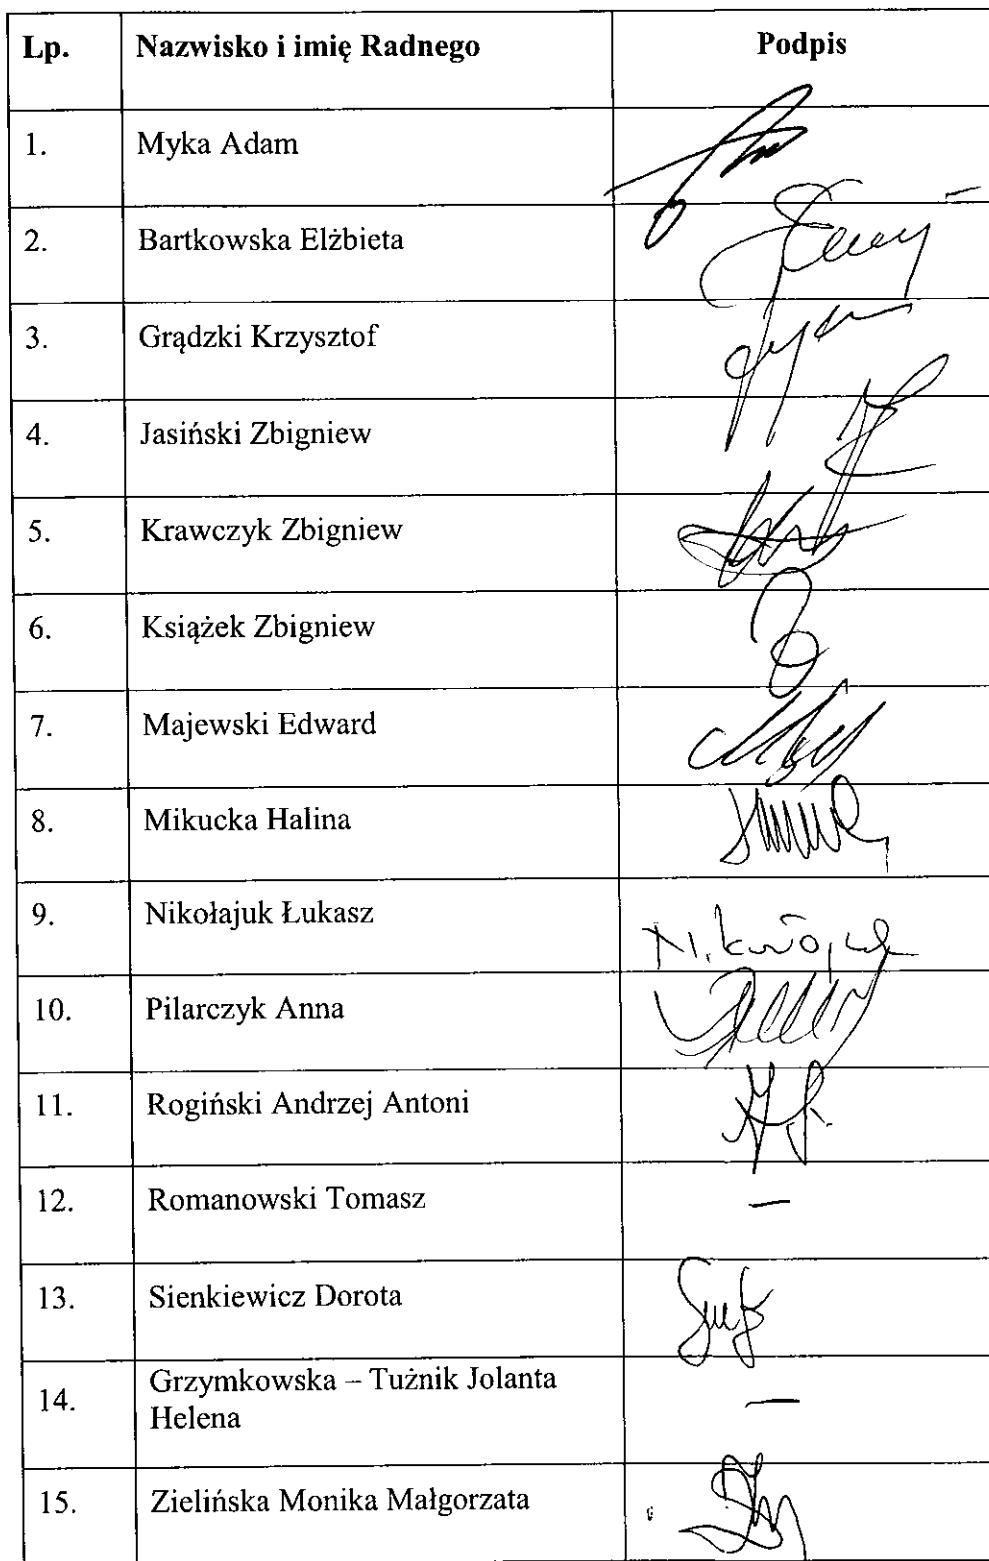 Lp. Nazwisko i imię Radnego Podpis
1. Myka Adam
2. Bartkowska Elżbieta
3. Grądzki Krzysztof
4. Jasiński Zbigniew
5. Krawczyk Zbigniew
6. Książek Zbigniew
7. Majewski Edward
8. Mikucka Halina
9. Nikołajuk Łukasz
10. Pilarczyk Anna
11. Rogiński Andrzej Antoni
12. Romanowski Tomasz —
13. Sienkiewicz Dorota
14. Grzymkowska – Tuźnik Jolanta
Helena —
15. Zielińska Monika Małgorzata